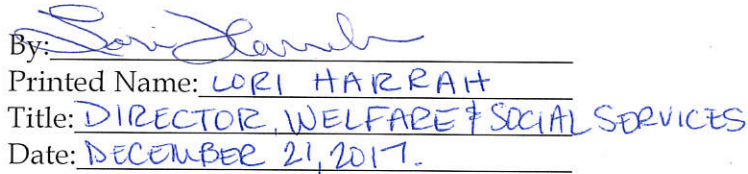 By: Lori Harrah
Printed Name: LORI HARRAH
Title: DIRECTOR, WELFARE & SOCIAL SERVICES
Date: DECEMBER 21, 2017.